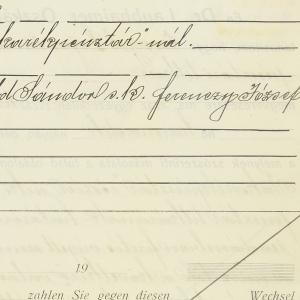 karékpénztár"-nál.
d Sándor s.k. ferenczy József
19
zahlen Sie gegen diesen Wechsel